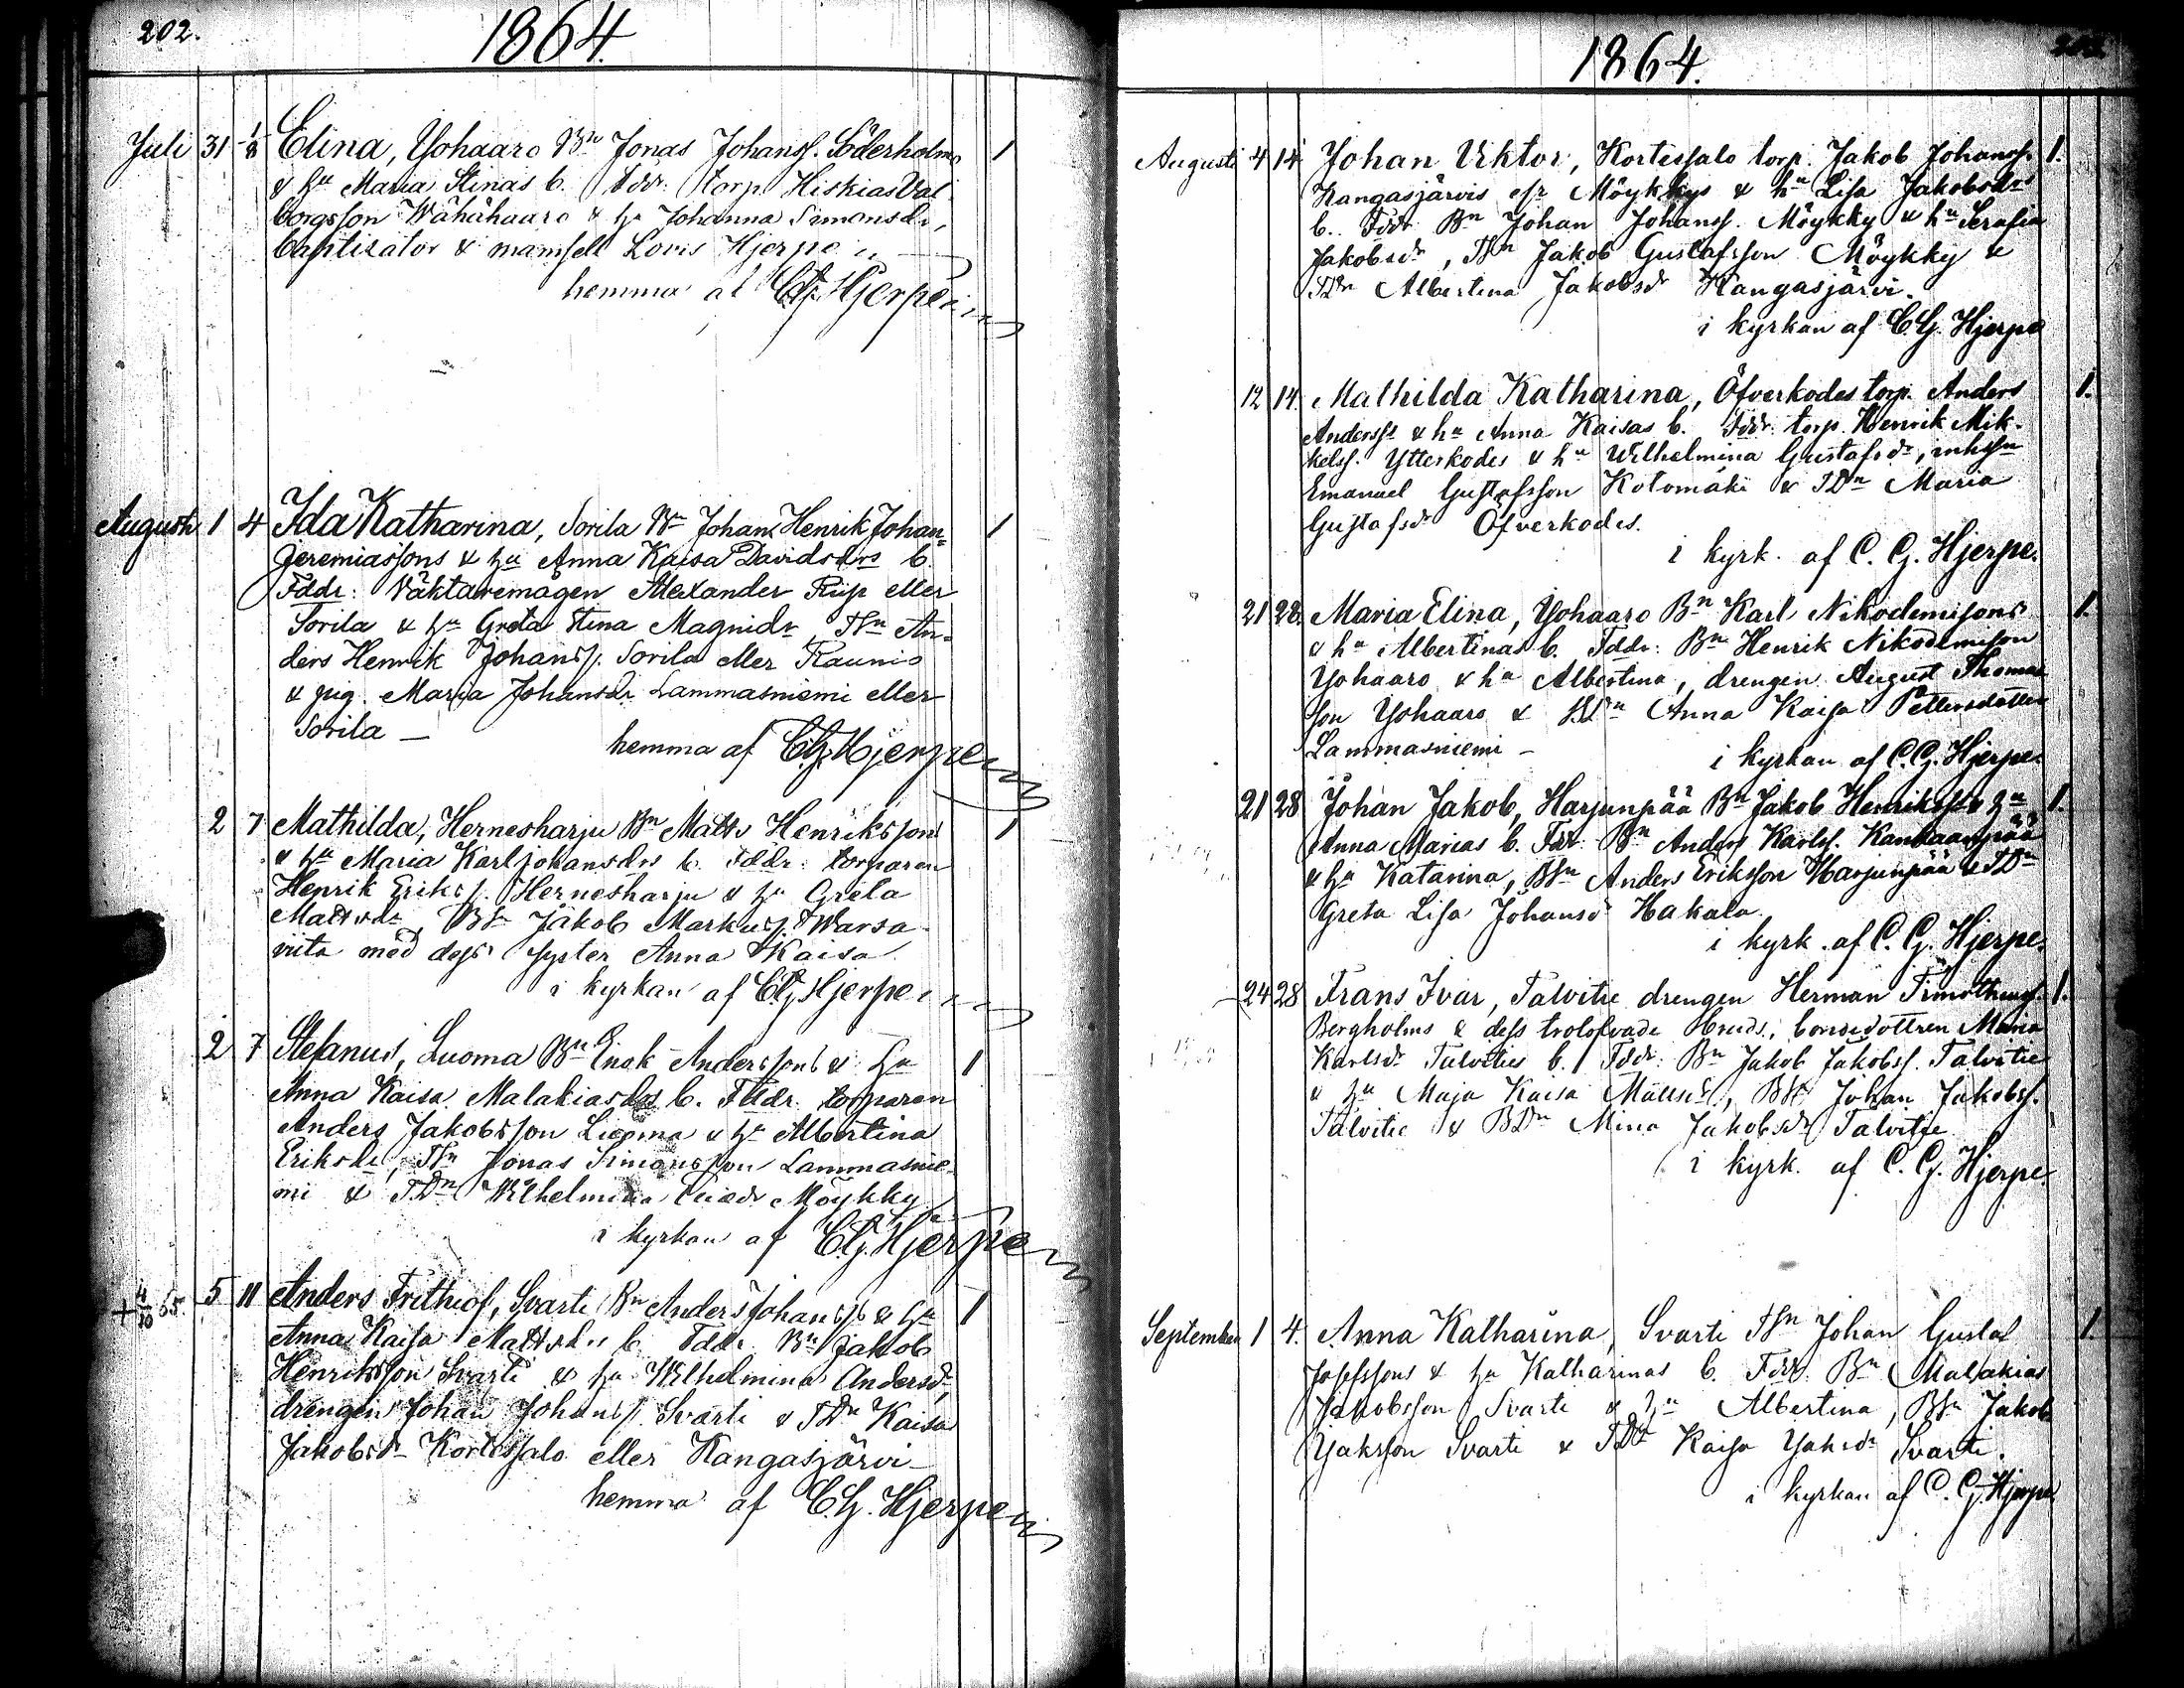 202.
1864.
Juli 31 1/8 Elina, Yohaaro Bn Jonas Johanss. Söderholms 1
& hu Maria Stinas b. Fddr: torp. Hiskias Val
borgsson Wähähaaro & hu Johanna Simonsdr,
baptizator & mamsell Lovis Hjerpe
hemma af C.G. Hjerpe
Augusti 1 4 Ida Katharina, Sorila Bn Johan Henrik Johan= 1
Jeremiassons & hu Anna Kaisa Davidsdrs b.
Fddr: Väktaremågen Alexander Riip eller
Sorila & hu Greta Stina Magnidr, TSn An-
ders Henrik Johanss. Sorila eller Raunio
& pig. Maria Johansdr Lammasniemi eller
Sorila —
hemma af C.G. Hjerpe
2 7 Mathilda, Hernesharju Bn Matts Henrikssons 1
& hu Maria Karljohansdrs b. Fddr: torparen
Henrik Erikss. Hernesharju & hu Greta
Mattsdr, BSn Jakob Markuss. Warsa-
viita med dess syster Anna Kaisa.
i kyrkan af C.G. Hjerpe
2 7 Stefanus, Luoma Bn Enok Anderssons & hu 1
Anna Kaisa Malakiasdrs b. Fddr. torparen
Anders Jakobsson Luoma & hu Albertina
Eriksdr, TSn Jonas Simonsson Lammasnie-
mi & TDn Wilhelmina Möykky
i kyrkan af C.G. Hjerpe
+ 4/10 65. 5 11 Anders Frithiof, Svarti Bn Anders Johanss & hu 1
Anna Kaisa Mattsdrs b. Fddr. Bn Jakob
Henriksson Svarti & hu Wilhelmina Andersdr
drengen Johan Johanss. Svarti & TDn Kaisa
Jakobsdr Kortessalo eller Kangasjärvi
hemma af C.G. Hjerpe
1864.
Augusti 4 14 Johan Viktor, Kortessalo torp. Jakob Johanss. 1.
Kangasjärvis efr Möykkys & hu Lisa Jakobsdrs
b. Fddr Bn Johan Johanss. Möykky & hu Serafia
Jakobsdr, TSn Jakob Gustafsson Möykky &
TDn Albertina Jakobsdr Kangasjärvi.
i kyrkan af C.G. Hjerpe
12 14. Mathilda Katharina, Öfverkodes torp. Anders 1.
Anderss & hu Anna Kaisas b. Fddr. torp. Henrik Mik-
kelss. Ytterkodes & hu Wilhelmina Gustafsdr, inhysn
Emanuel Gustafsson Kotomäki & TDn Maria
Gustafsdr Öfverkodes.
i kyrk. af C. G. Hjerpe.
21 28. Maria Elina, Yohaaro Bn Karl Nikodemisons 1.
& hu Albertinas b. Fddr: Bn Henrik Nikodemison
Yohaaro & hu Albertina, drengen August Thomas
son Yohaaro & BDn Anna Kaisa Pettersdotter
Lammasniemi —
i kyrkan af C.G. Hjerpe
21 28 Johan Jakob, Harjunpää Bn Jakob Henrikss & hu 1.
Anna Marias b. Fdr. Bn Anders Karlss. Kankaanpää
& hu Katarina, BSn Anders Eriksson Harjunpää & TDn
Greta Lisa Johansd Hakala.
i kyrk. af C. G. Hjerpe.
24 28 Frans Ivar, Talvitie drengen Herman Timotheuss. 1.
Bergholms & dess trolofvade bruds, bondedottren Maria
Karlsdr Talvities b. Fddr. Bn Jakob Jakobss. Talvitie
& hu Maja Kaisa Mattsdr, BSn Johan Jakobss.
Talvitie & BDn Mina Jakobsdr Talvitie
i kyrk. af C. G. Hjerpe
September 1 4. Anna Katharina, Svarti TSn Johan Gustaf 1.
Josefssons & hu Katharinas b. Fddr. Bn Malakias
Jakobsson Svarti & hu Albertina, BSn Jakob
Isaksson Svarti & TDn Kaisa Isaksdr Svarti.
i kyrkan af C. G. Hjerpe